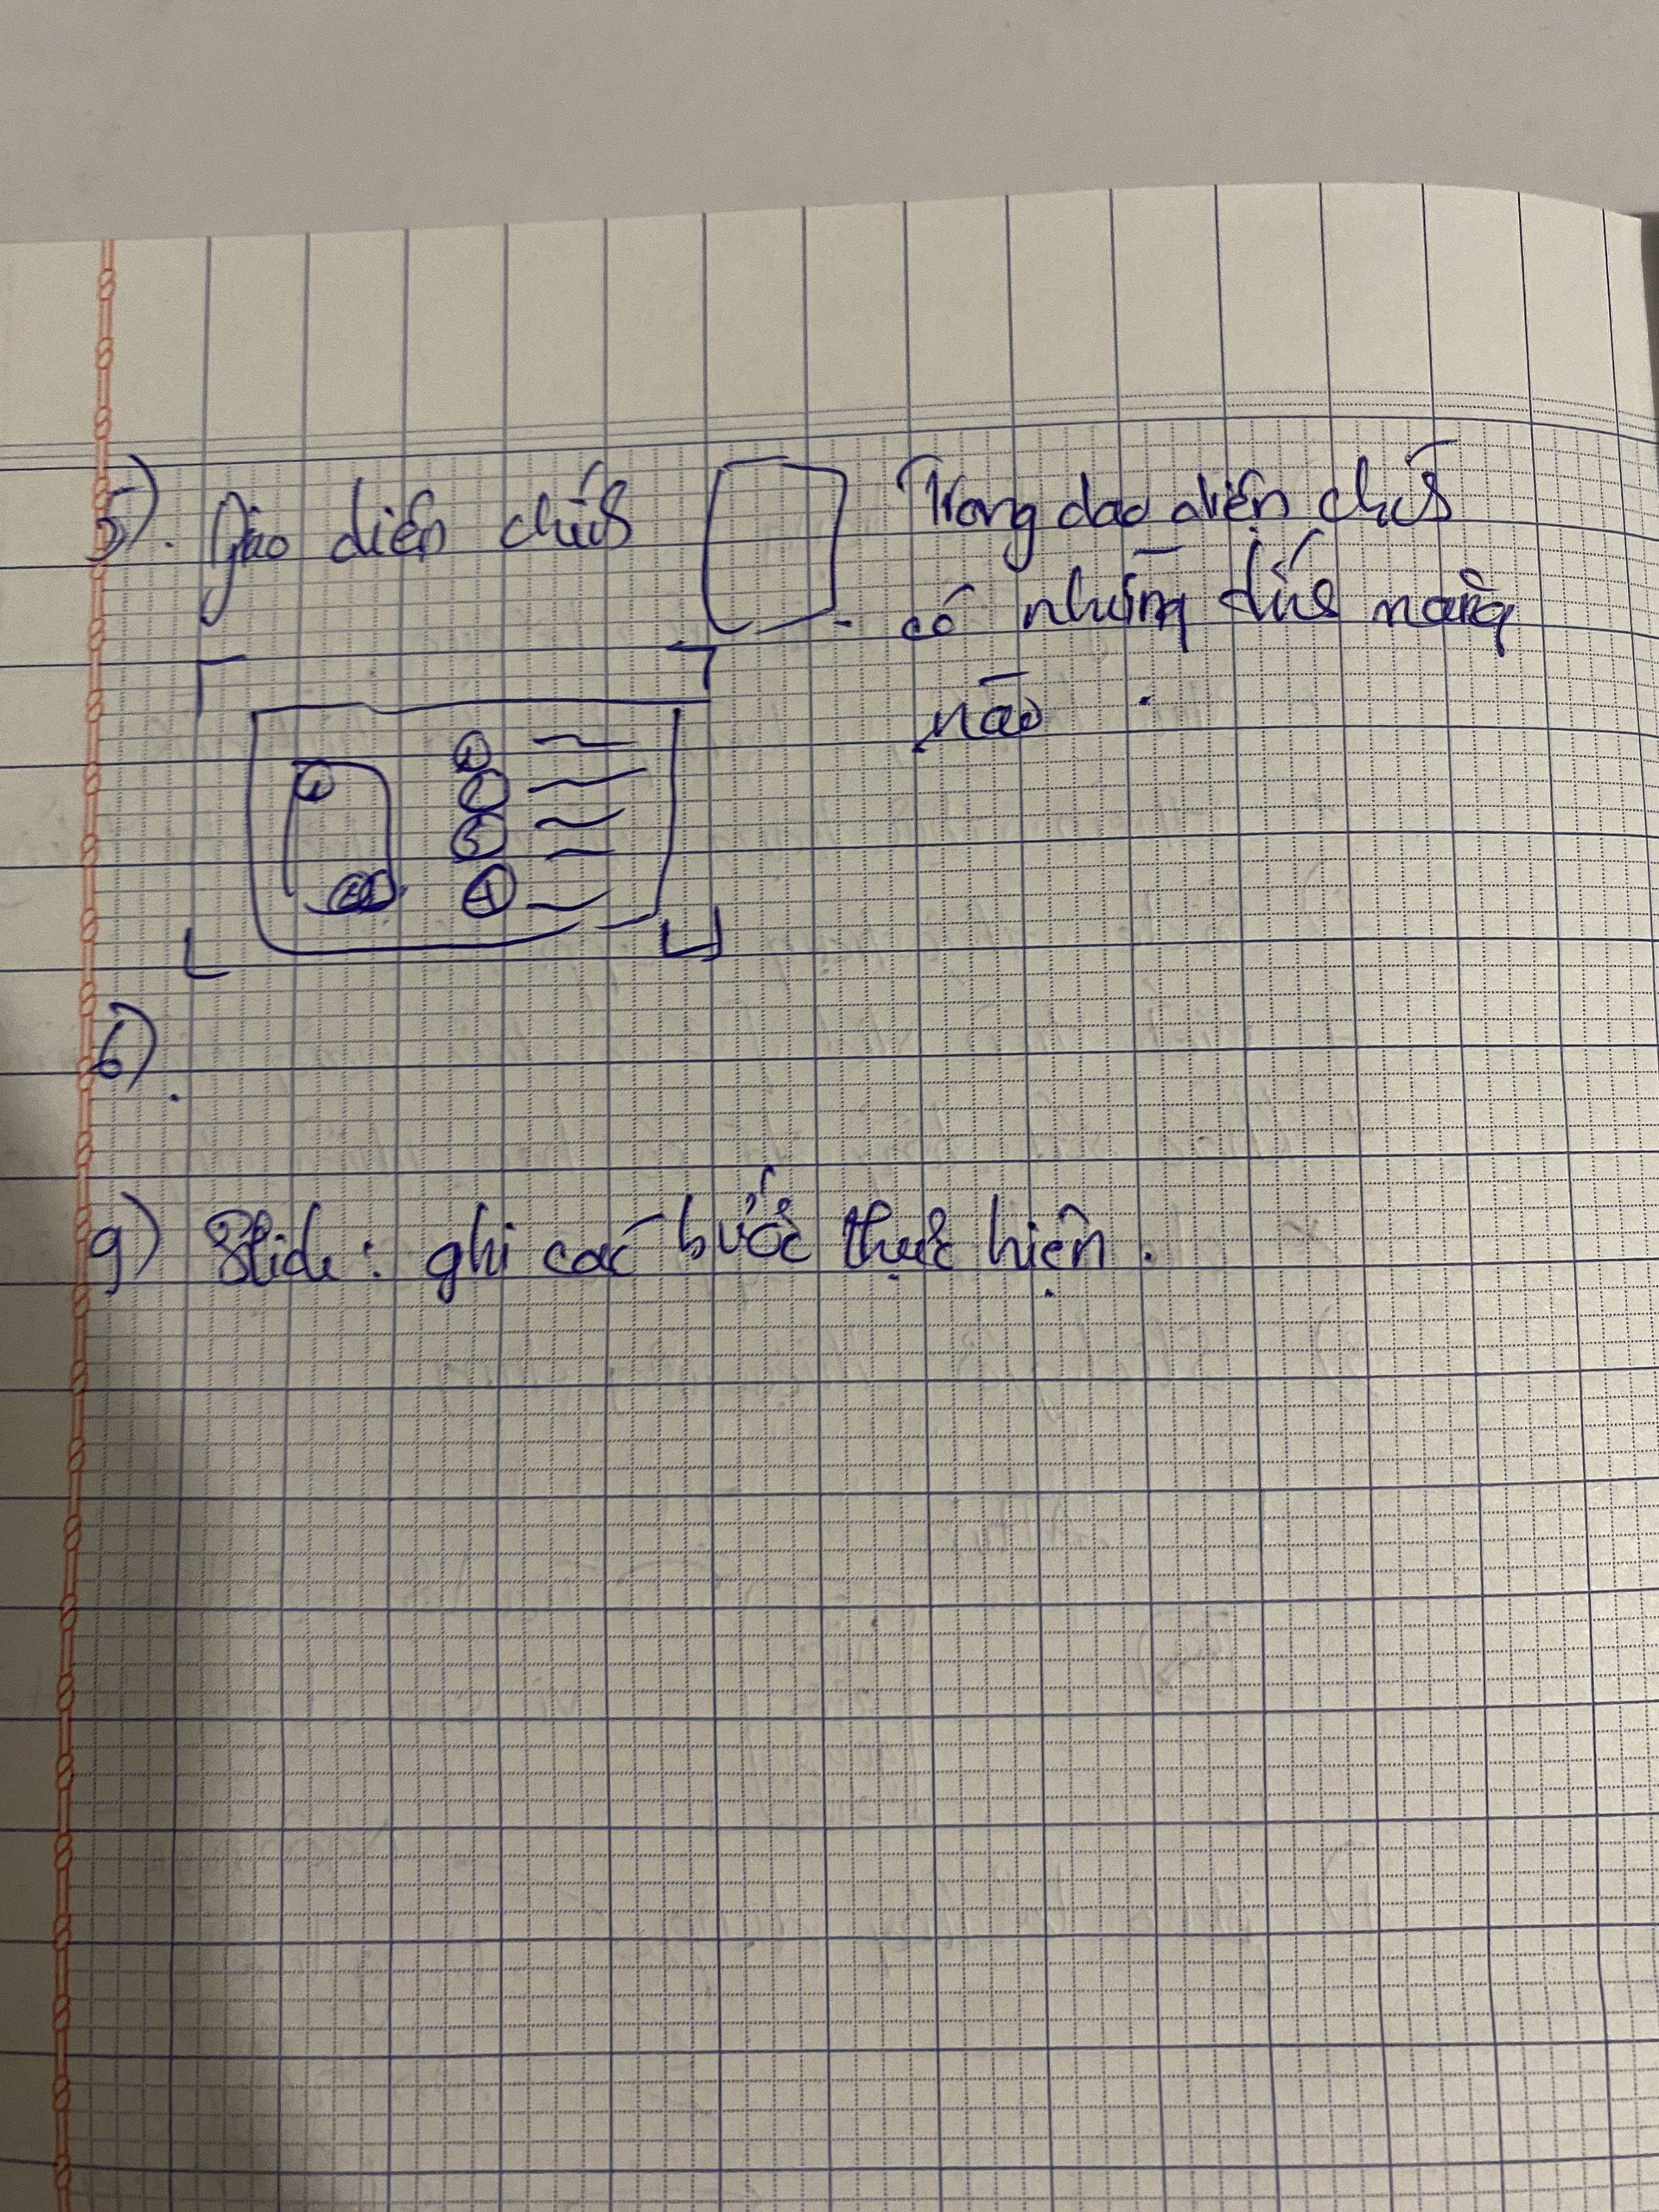 5). Giao diện chính
Trong dao diện chính
có những chức năng
nào.
1
1
2
3
4
6).
9) Slide: ghi các bước thực hiện.